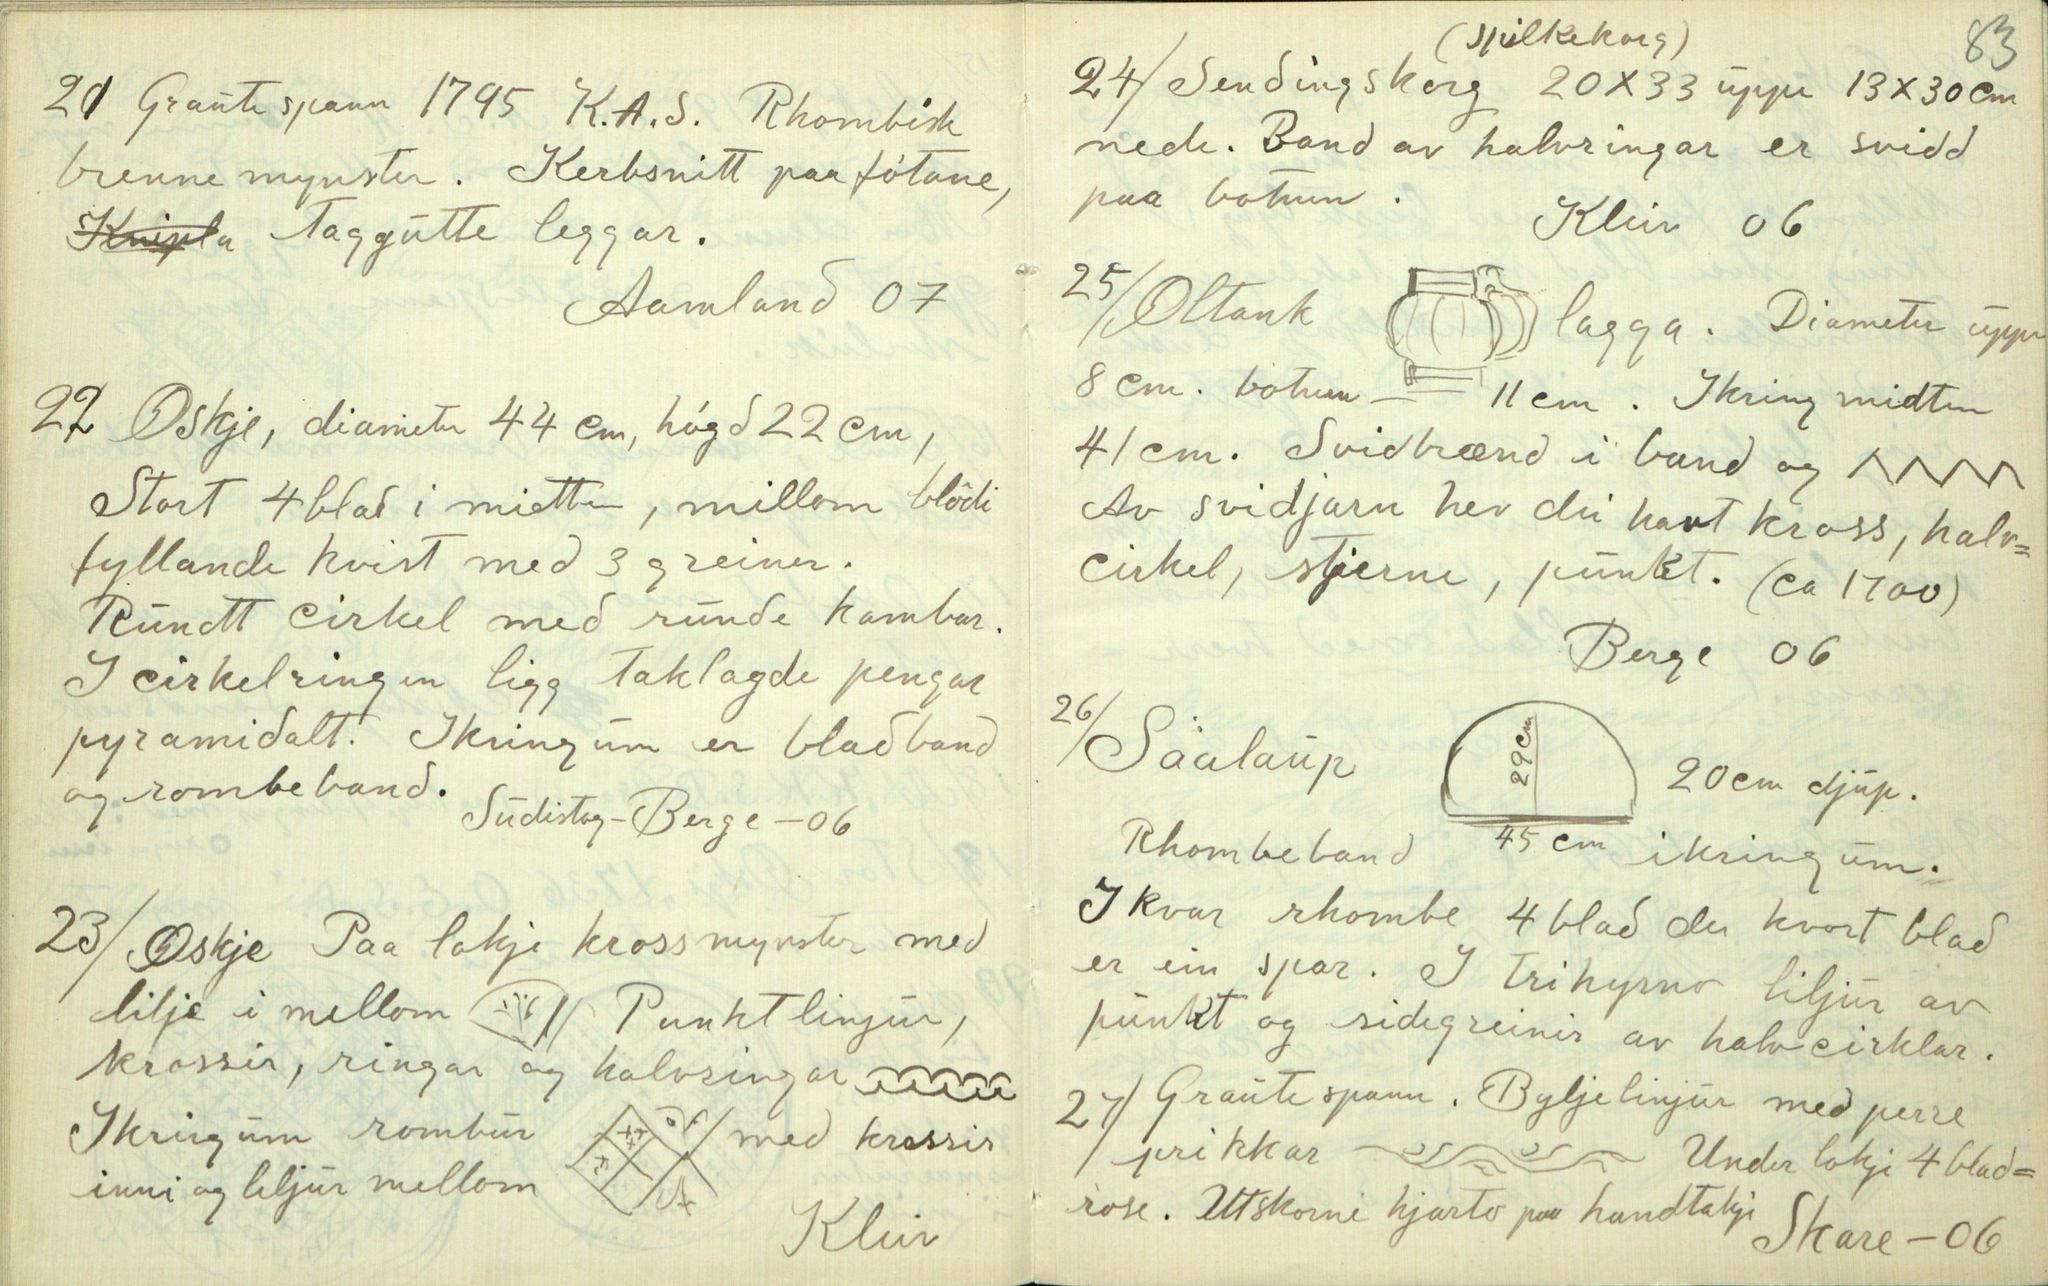 21 Graute spann 1795 K.A.S. Rhombisk
brenne mynster. Kerbsnitt paa fótane,
Taggutte leggar.
Aamland 07
22 Øskje, diameter 44 cm, hógd 22 cm,
Stort 4 blad i midten, millom blódi
fyllande kvist med 3 greiner.
Rundtt cirkel med runde kambar.
I cirkelringen ligg taklagde pengar
pyramidalt. Ikring um er bladband
og rombeband.
Sudistog - Berge - 06
23/ Øskje Paa lokje krossmynster med
lilje i mellom Punktlinjur,
krossir, ringar og halvringar
Ikring um rombur med krossir
inni og liljur mellom
Kleiv
83
(spilkekorg)
24/ Sendingskorg 20X33 uppe 13X30 cm
nede. Band av halvringar er svidd
paa botnen.
Kleiv 06
25/ Øltank lagga. Diameter uppe
8 cm. botnen — 11 cm. Ikring midten
41 cm. Svidbrænd i band og
Av svidjarn hev dei havt kross, halv=
cirkel, stjerne, punkt. (ca 1700)
Berge 06
26/ Säalaup 29 cm 20 cm djup.
Rhombeband 45 cm ikring um.
I kvar rhombe 4 blad der kvart blad
er ein spar. I trihyrno liljur av
punkt og sidegreinir av halvcirklar.
27/ Graute spann. Byljelinjur med perre
prikkar Under lokji 4 blad=
rose. Uttskorne hjarto paa handtakji
Skare - 06